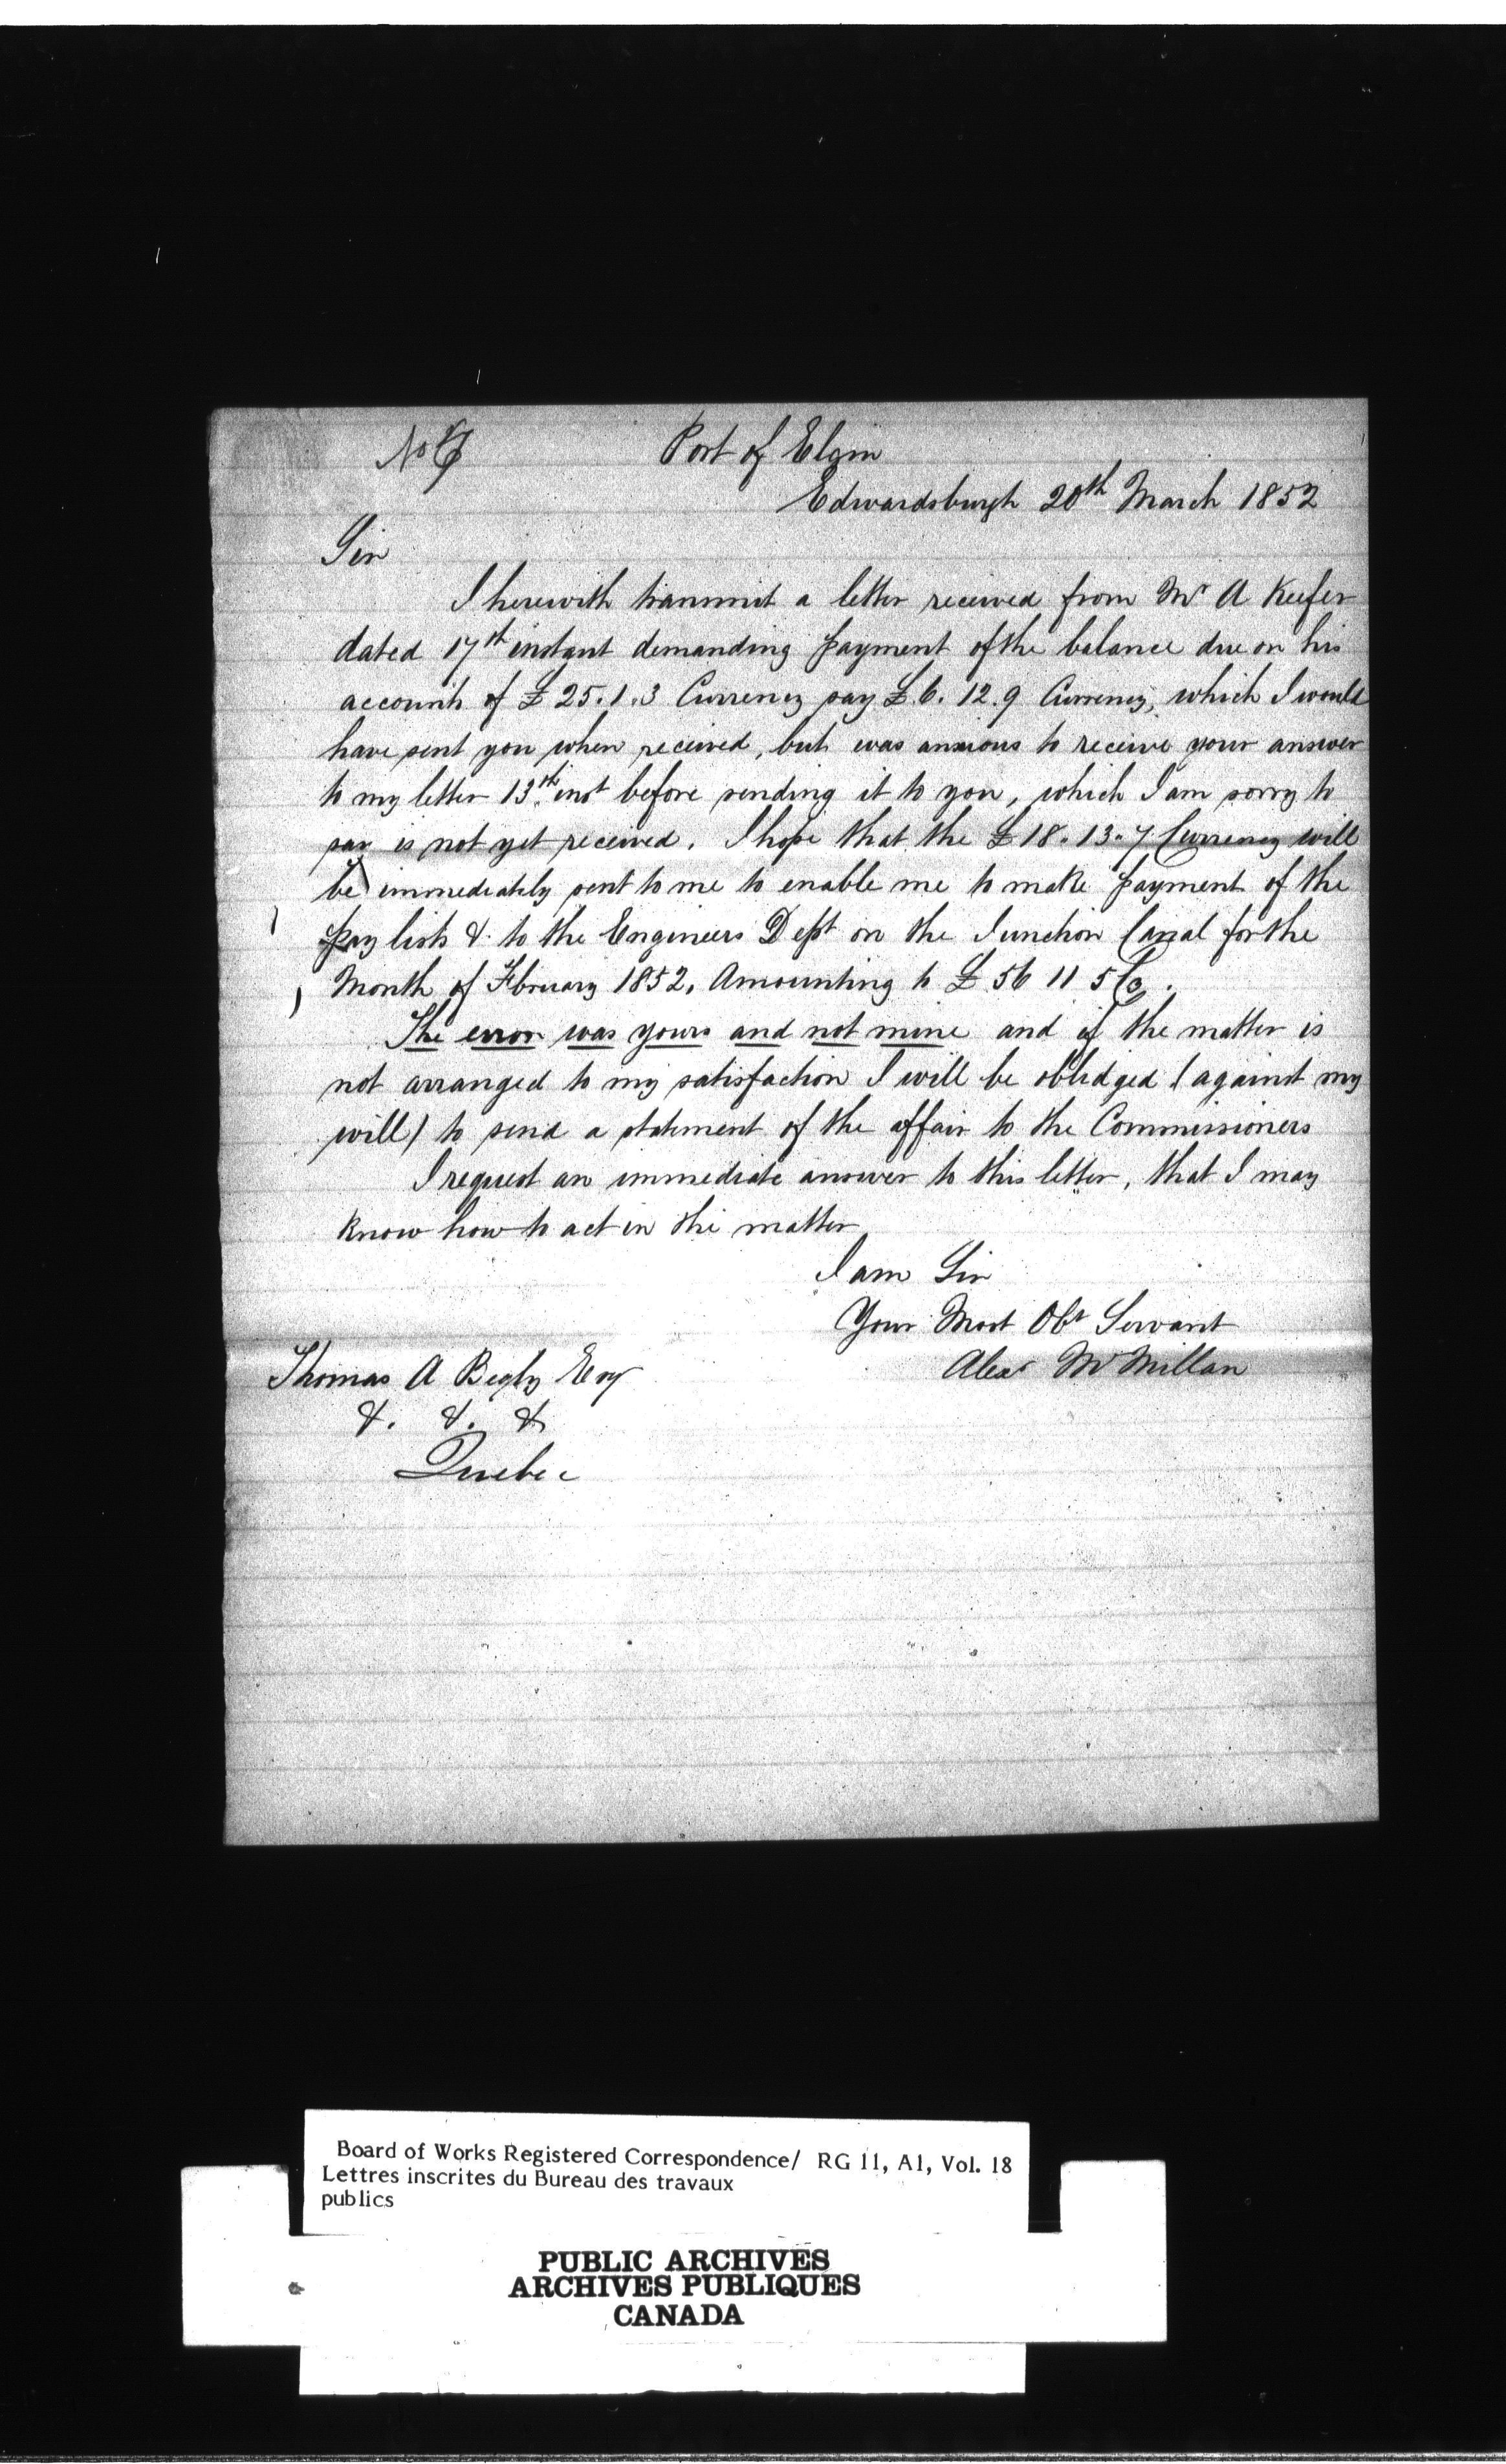 No 7
Port of Elgin
Edwardsburgh 20th March 1852
Sir
I herewith transmit a letter received from Mr A Keefer
dated 17th instant demanding payment of the balance due on his
accounts of £25.1.3 Currency say £.6.12.9 Currency, which I would
have sent you when received, but was anxious to receive your answer
to my letter 13th inst before sending it to you, which I am sorry to
say is not yet received. I hope that the £18.13.7 Currency will
be immediately sent to me to enable me to make payment of the
pay lists &. to the Engineers Dept on the Junction Canal for the
Month of February 1852. Amounting to £56 11 5 Cy.
The error was yours and not mine and if the matter is
not arranged to my satisfaction I will be oblidged (against my
will) to send a statement of the affair to the Commissioners
I request an immediate answer to this letter, that I may
know how to act in the matter
I am Sir
Your Most Obt Servant
Alexr McMillan
Thomas A Begly Esq
&. &. &
Quebec
Board of Works Registered Correspondence/ RG 11, A1, Vol. 18
Lettres inscrites du Bureau des travaux
publics
PUBLIC ARCHIVES
ARCHIVES PUBLIQUES
CANADA